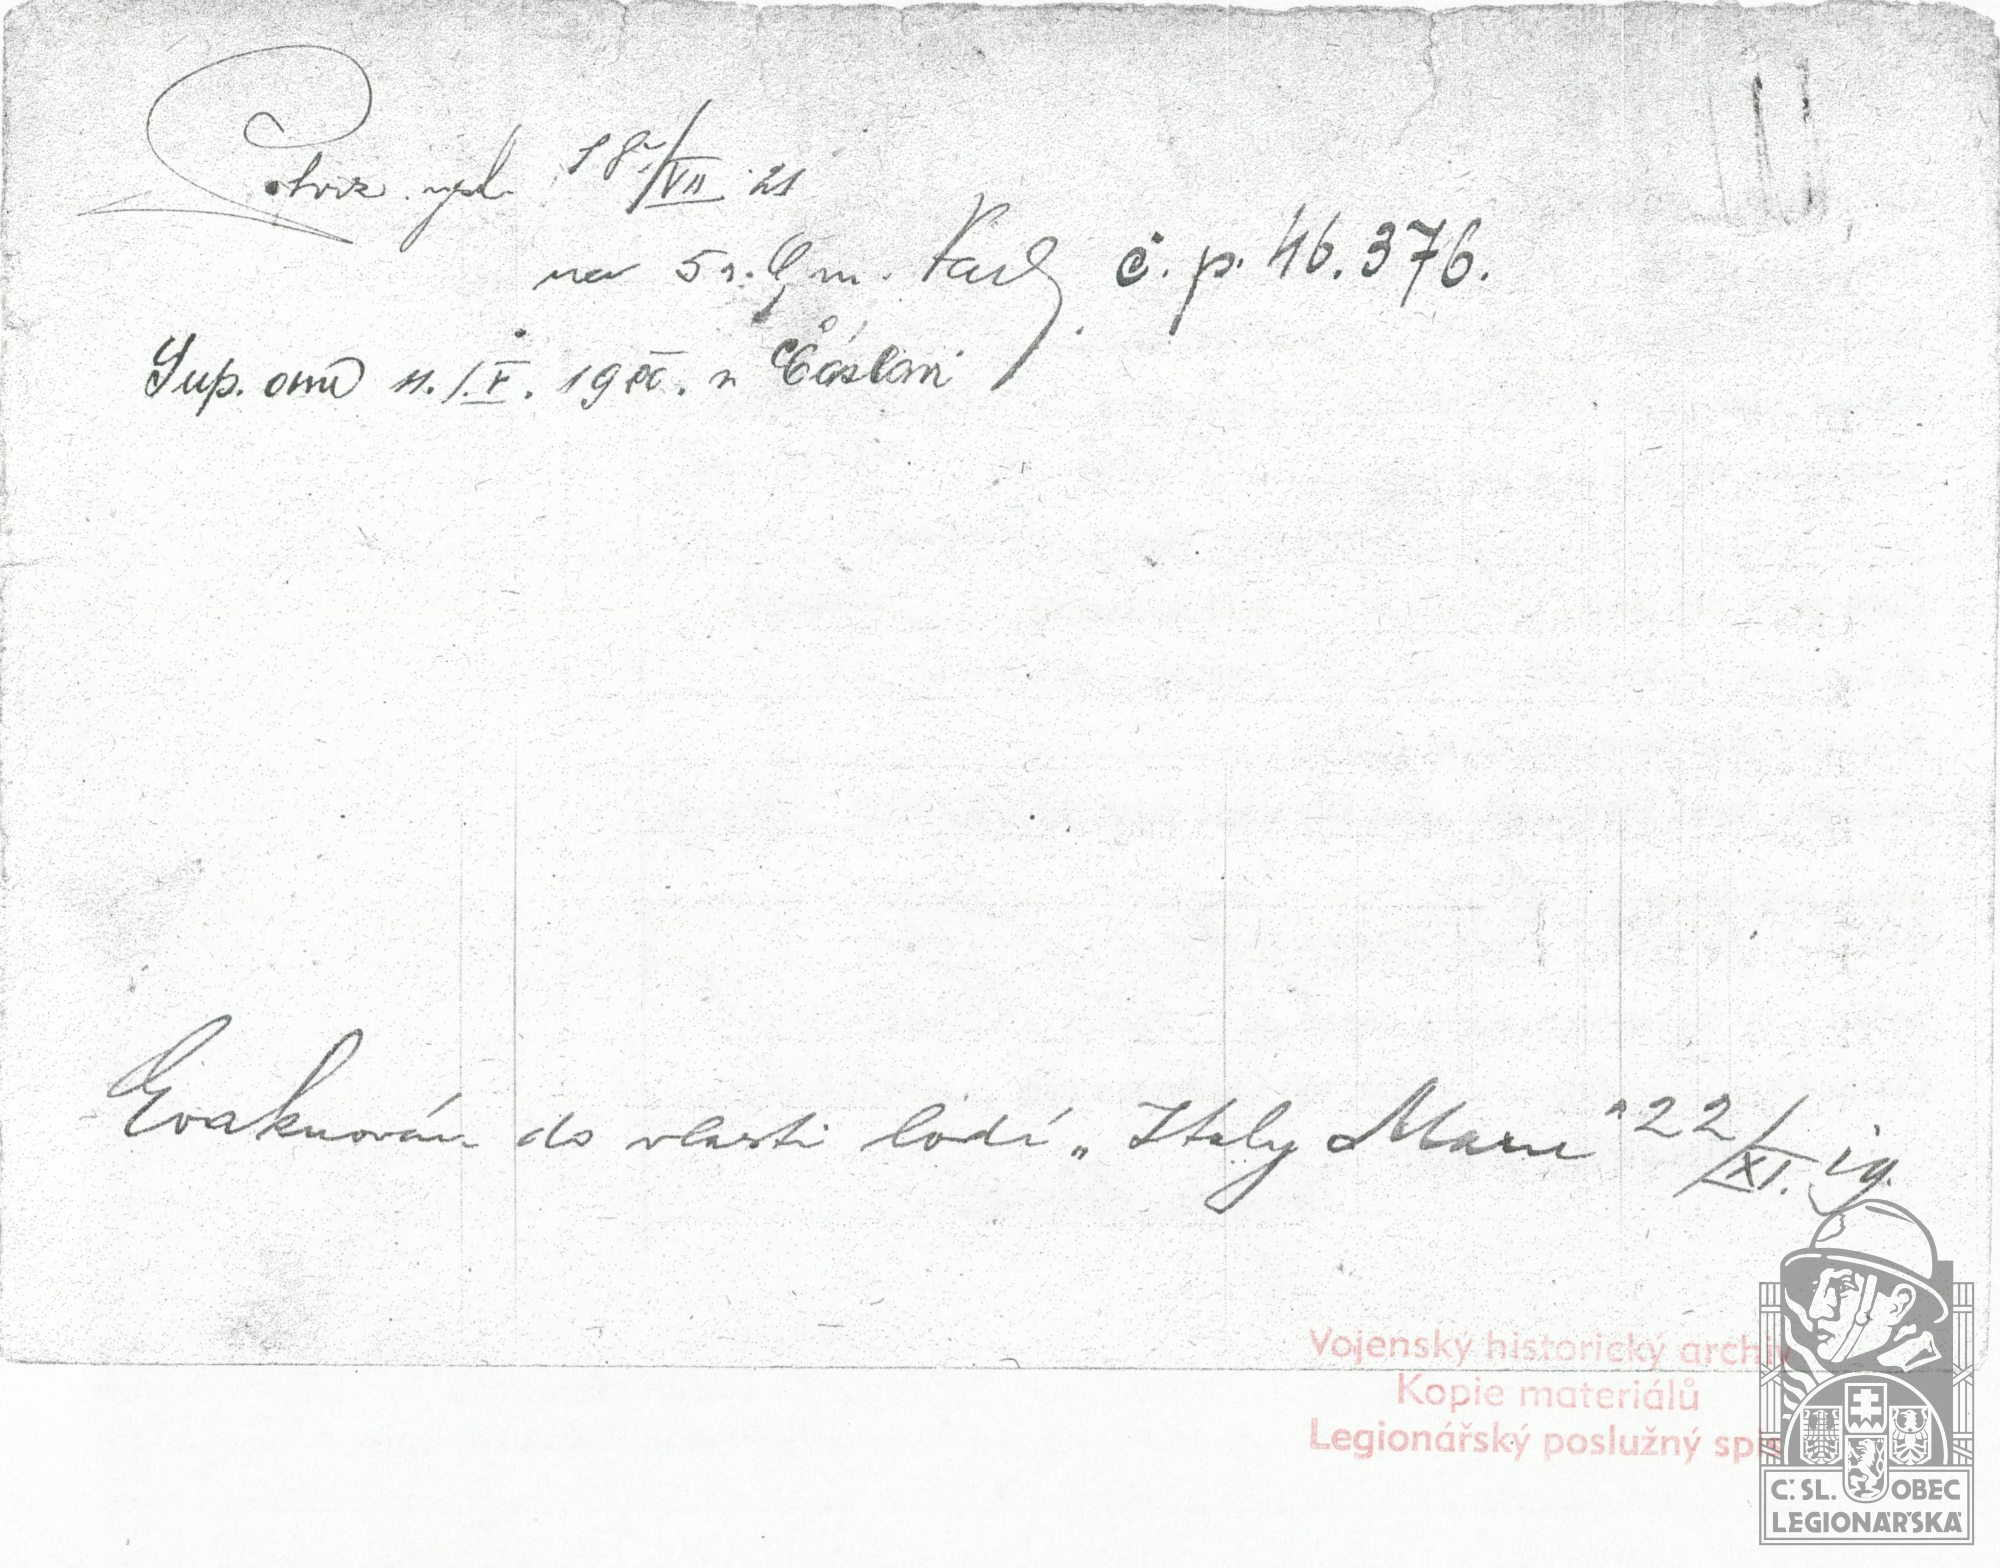 Potvrz. vypl. 18/VII 21
na 5 r. č. p. 46.376.
Sup. v Čáslavi
Evakuován do vlasti lodí „Italy Maru" 22/XI. 19.
Vojenský historický archiv
Kopie materiálů
Legionářský poslužný spis
Č. SL. OBEC
LEGIONÁŘSKÁ